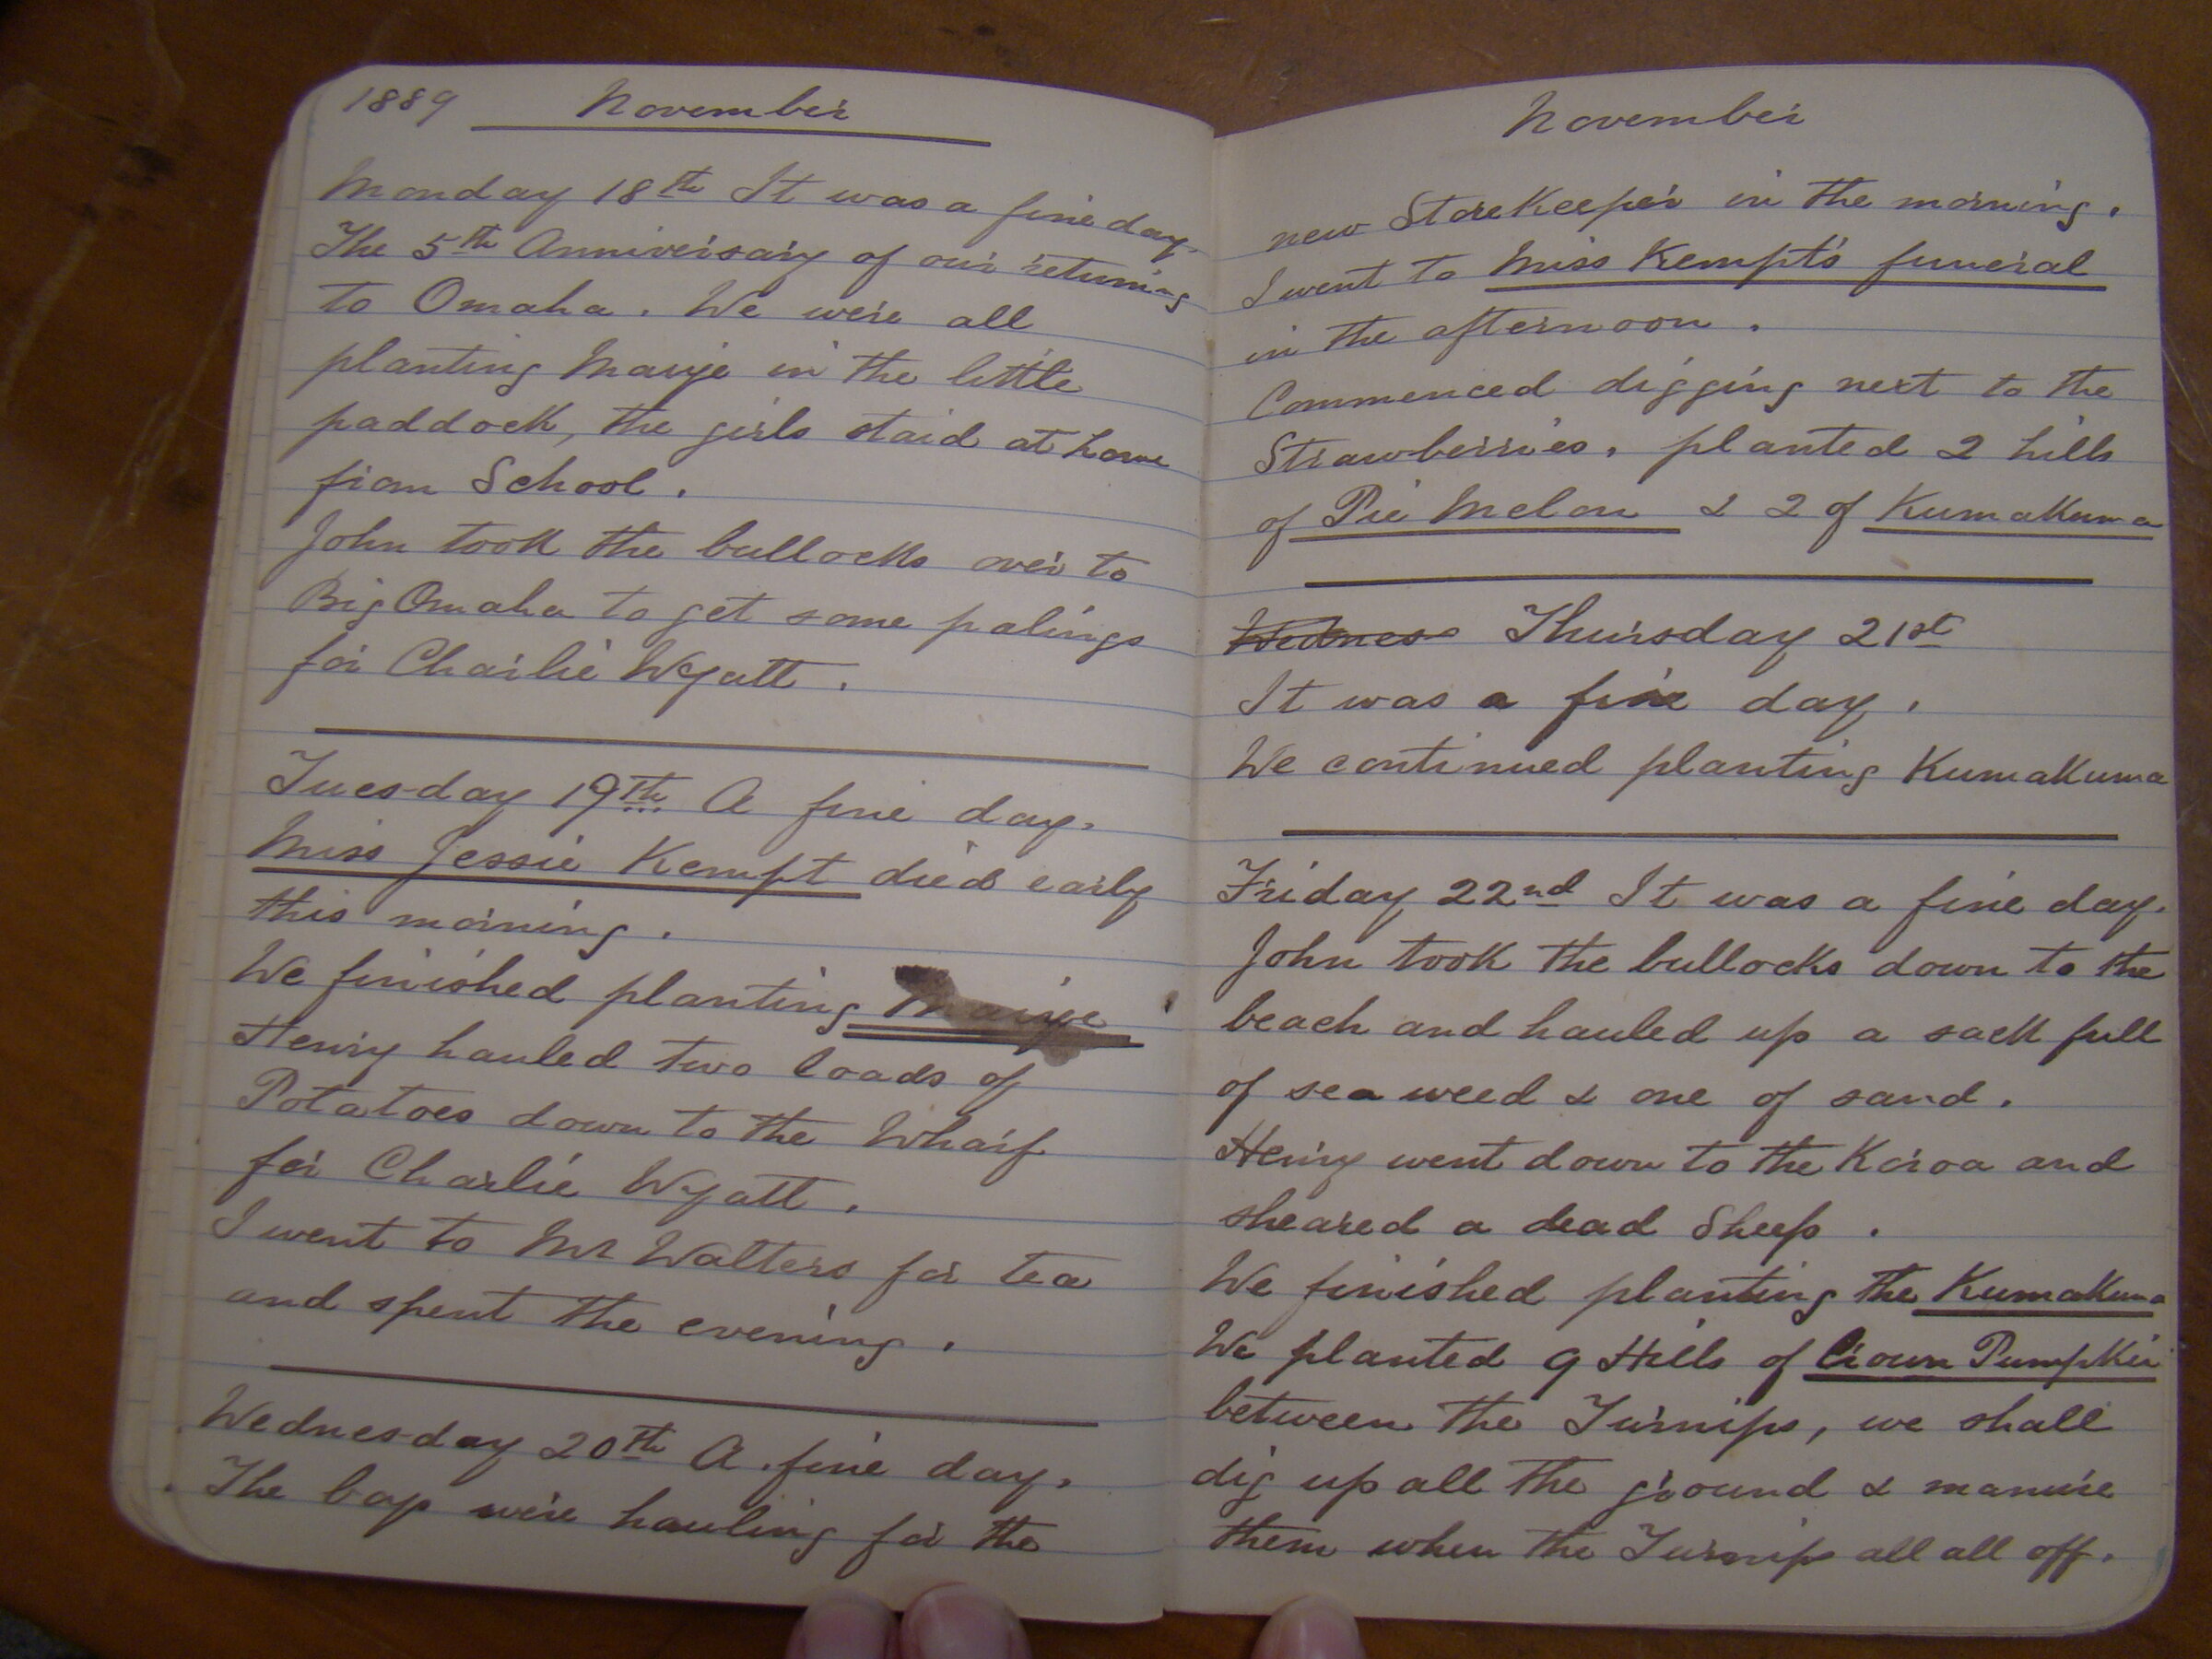 1889 November
Monday 18th It was a fine day.
The 5th Anniversary of our returning
to Omaha. We were all
planting Maize in the little
paddock, the girls staid at home
from School.
John took the bullocks over to
Big Omaha to get some palings
for Charlie Wyatt.
Tuesday 19th A fine day.
Miss Jessie Kempt died early
this morning.
We finished planting Maize
Henry hauled two loads of
Potatoes down to the Wharf
for Charlie Wyatt.
I went to Mr Walters for tea
and spent the evening.
Wednesday 20th A fine day.
The boys were hauling for the
November
new StoreKeeper in the morning.
I went to Miss Kempt's funeral
in the afternoon.
Commenced digging next to the
Strawberries, planted 2 hills
of Pie Melon & 2 of KumaKuma
Wednes Thursday 21st
It was a fine day.
We continued planting KumaKuma
Friday 22nd It was a fine day.
John took the bullocks down to the
beach and hauled up a sack full
of sea weed & one of sand.
Henry went down to the Koroa and
sheared a dead Sheep.
We finished planting the KumaKuma
We planted 9 Hills of Crown Pumpkin
between the Turnips, we shall
dig up all the ground & manure
them when the Turnips all all off.